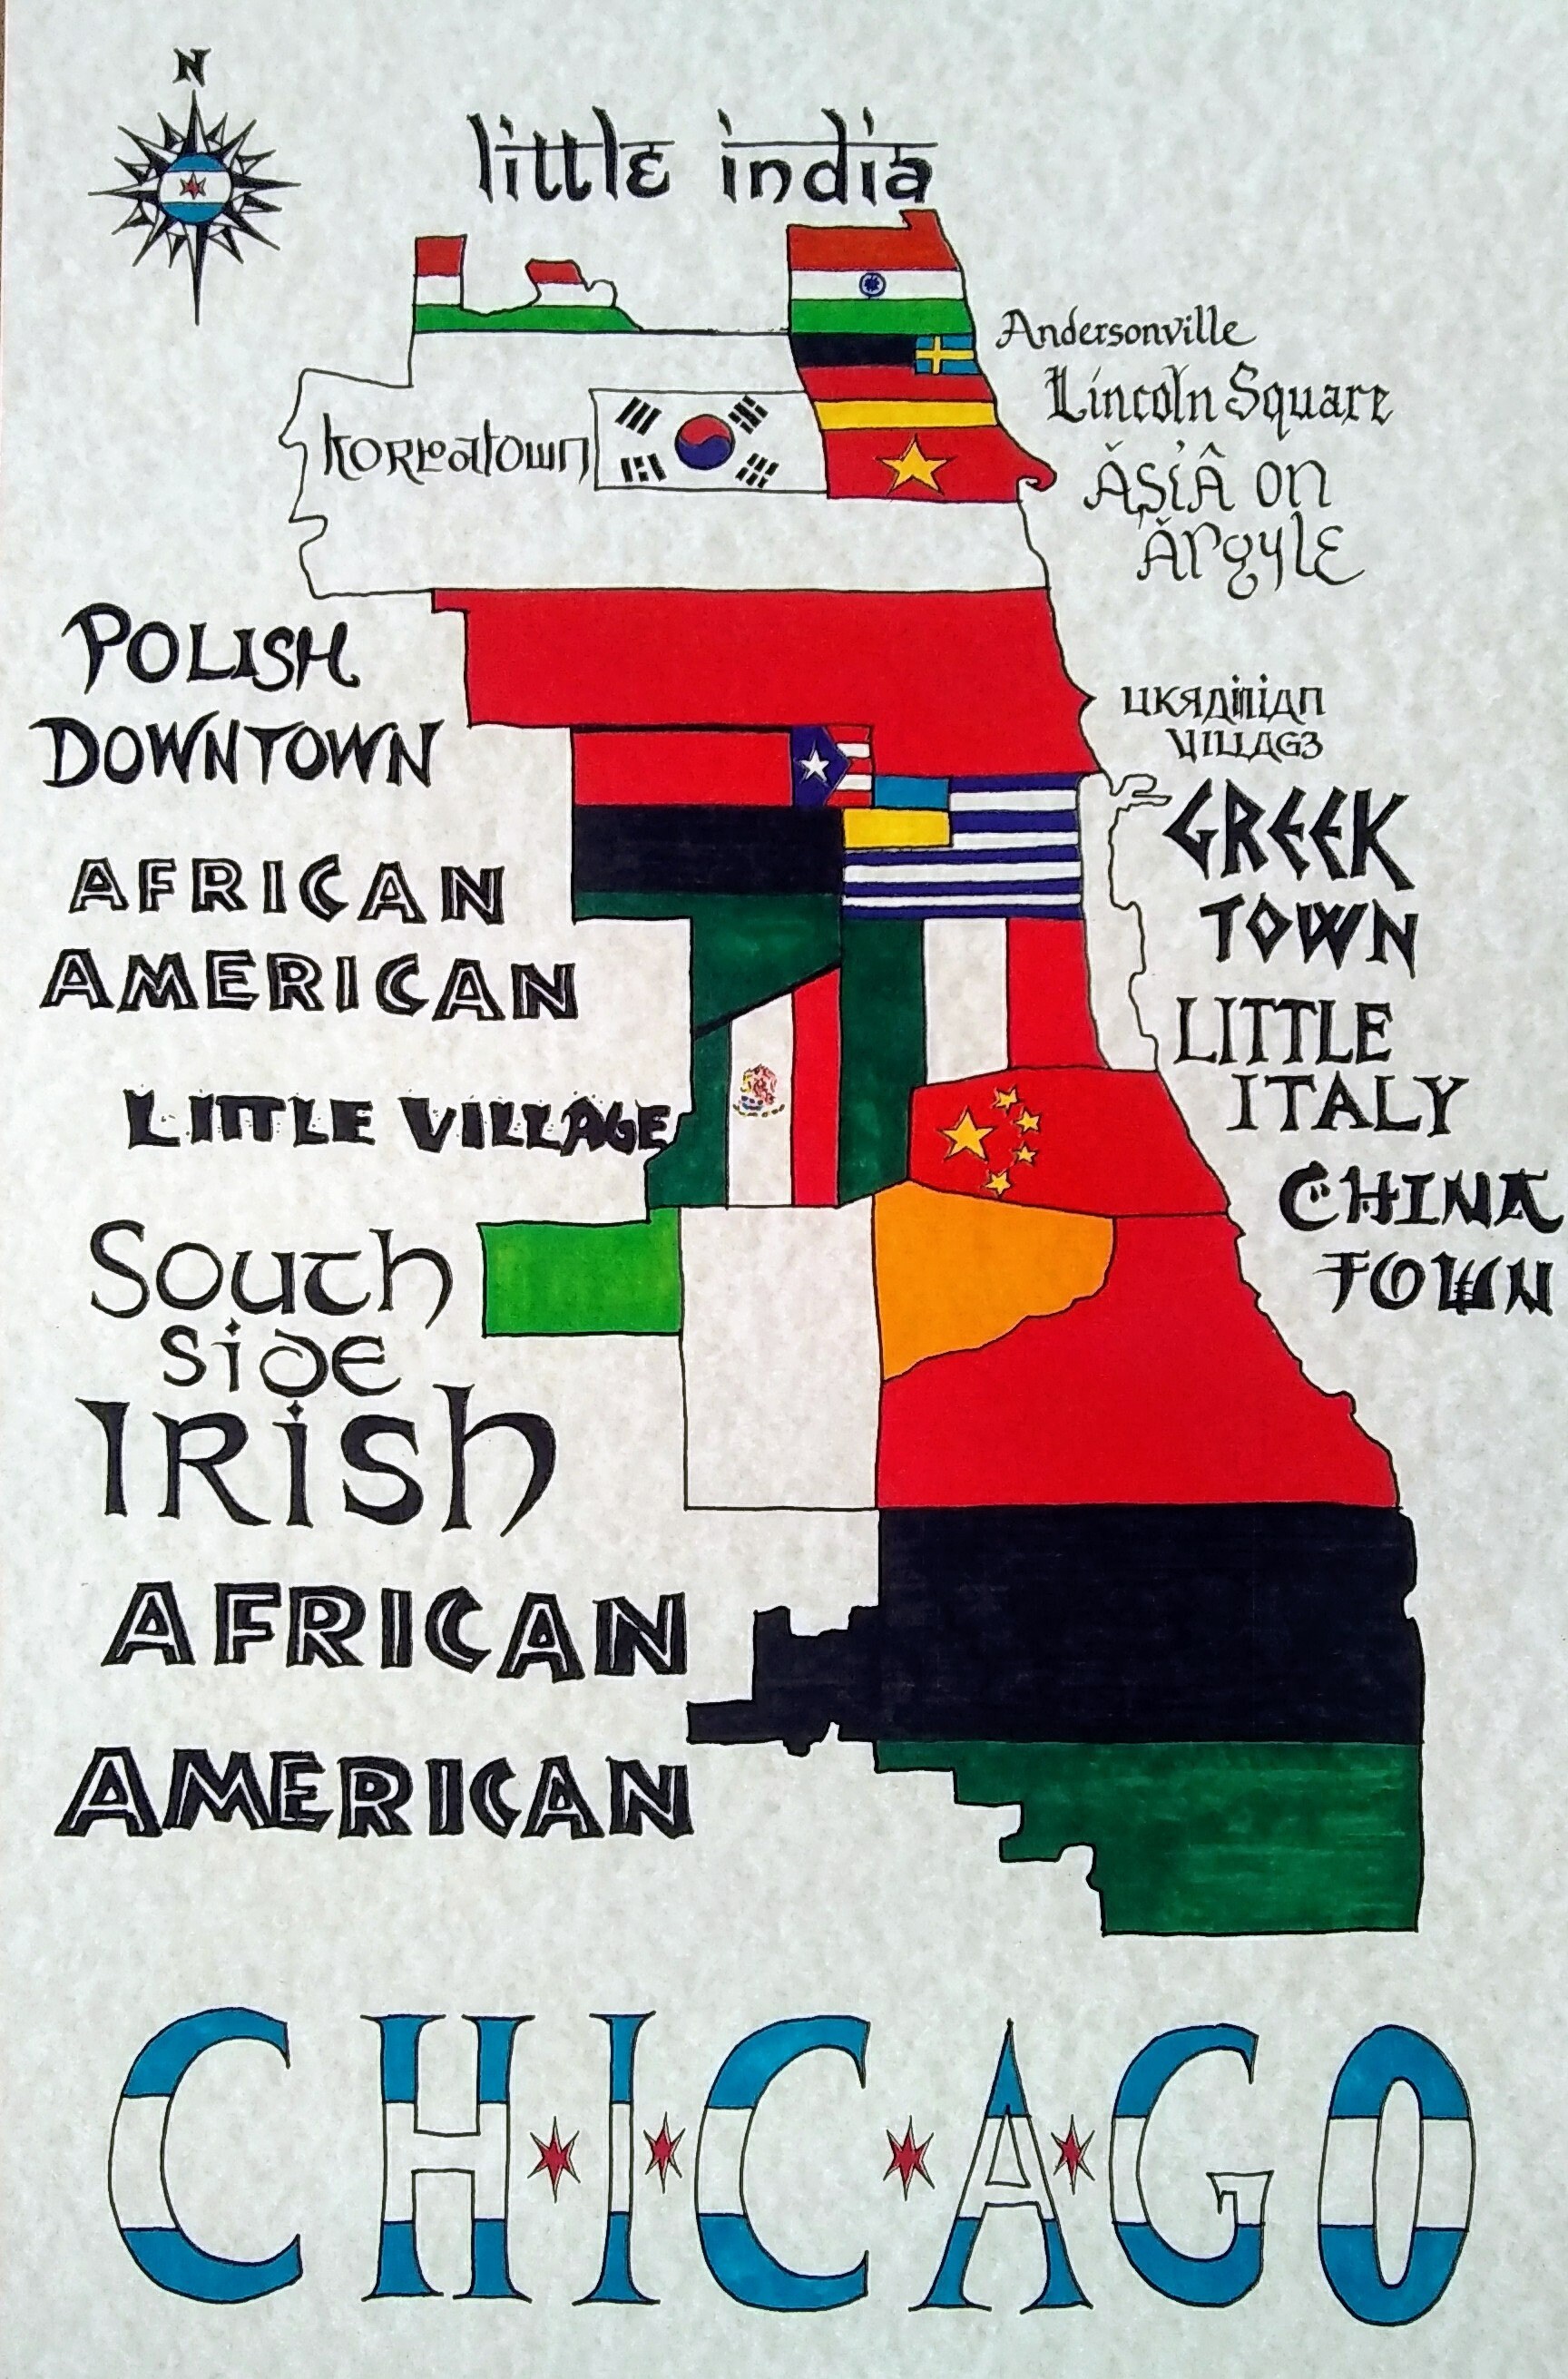 N
little india
Andersonville
Lincoln Square
Koreatown
ĂSíÂ on
Ărgyle
POLISH
DOWNTOWN
UKЯAINIAN
VILLAGЭ
GREEK
TOWN
AFRICAN
AMERICAN
LITTLE
ITALY
LITTLE VILLAGE
CHINA
TOWN
South
Side
Irish
AFRICAN
AMERICAN
CHICAGO